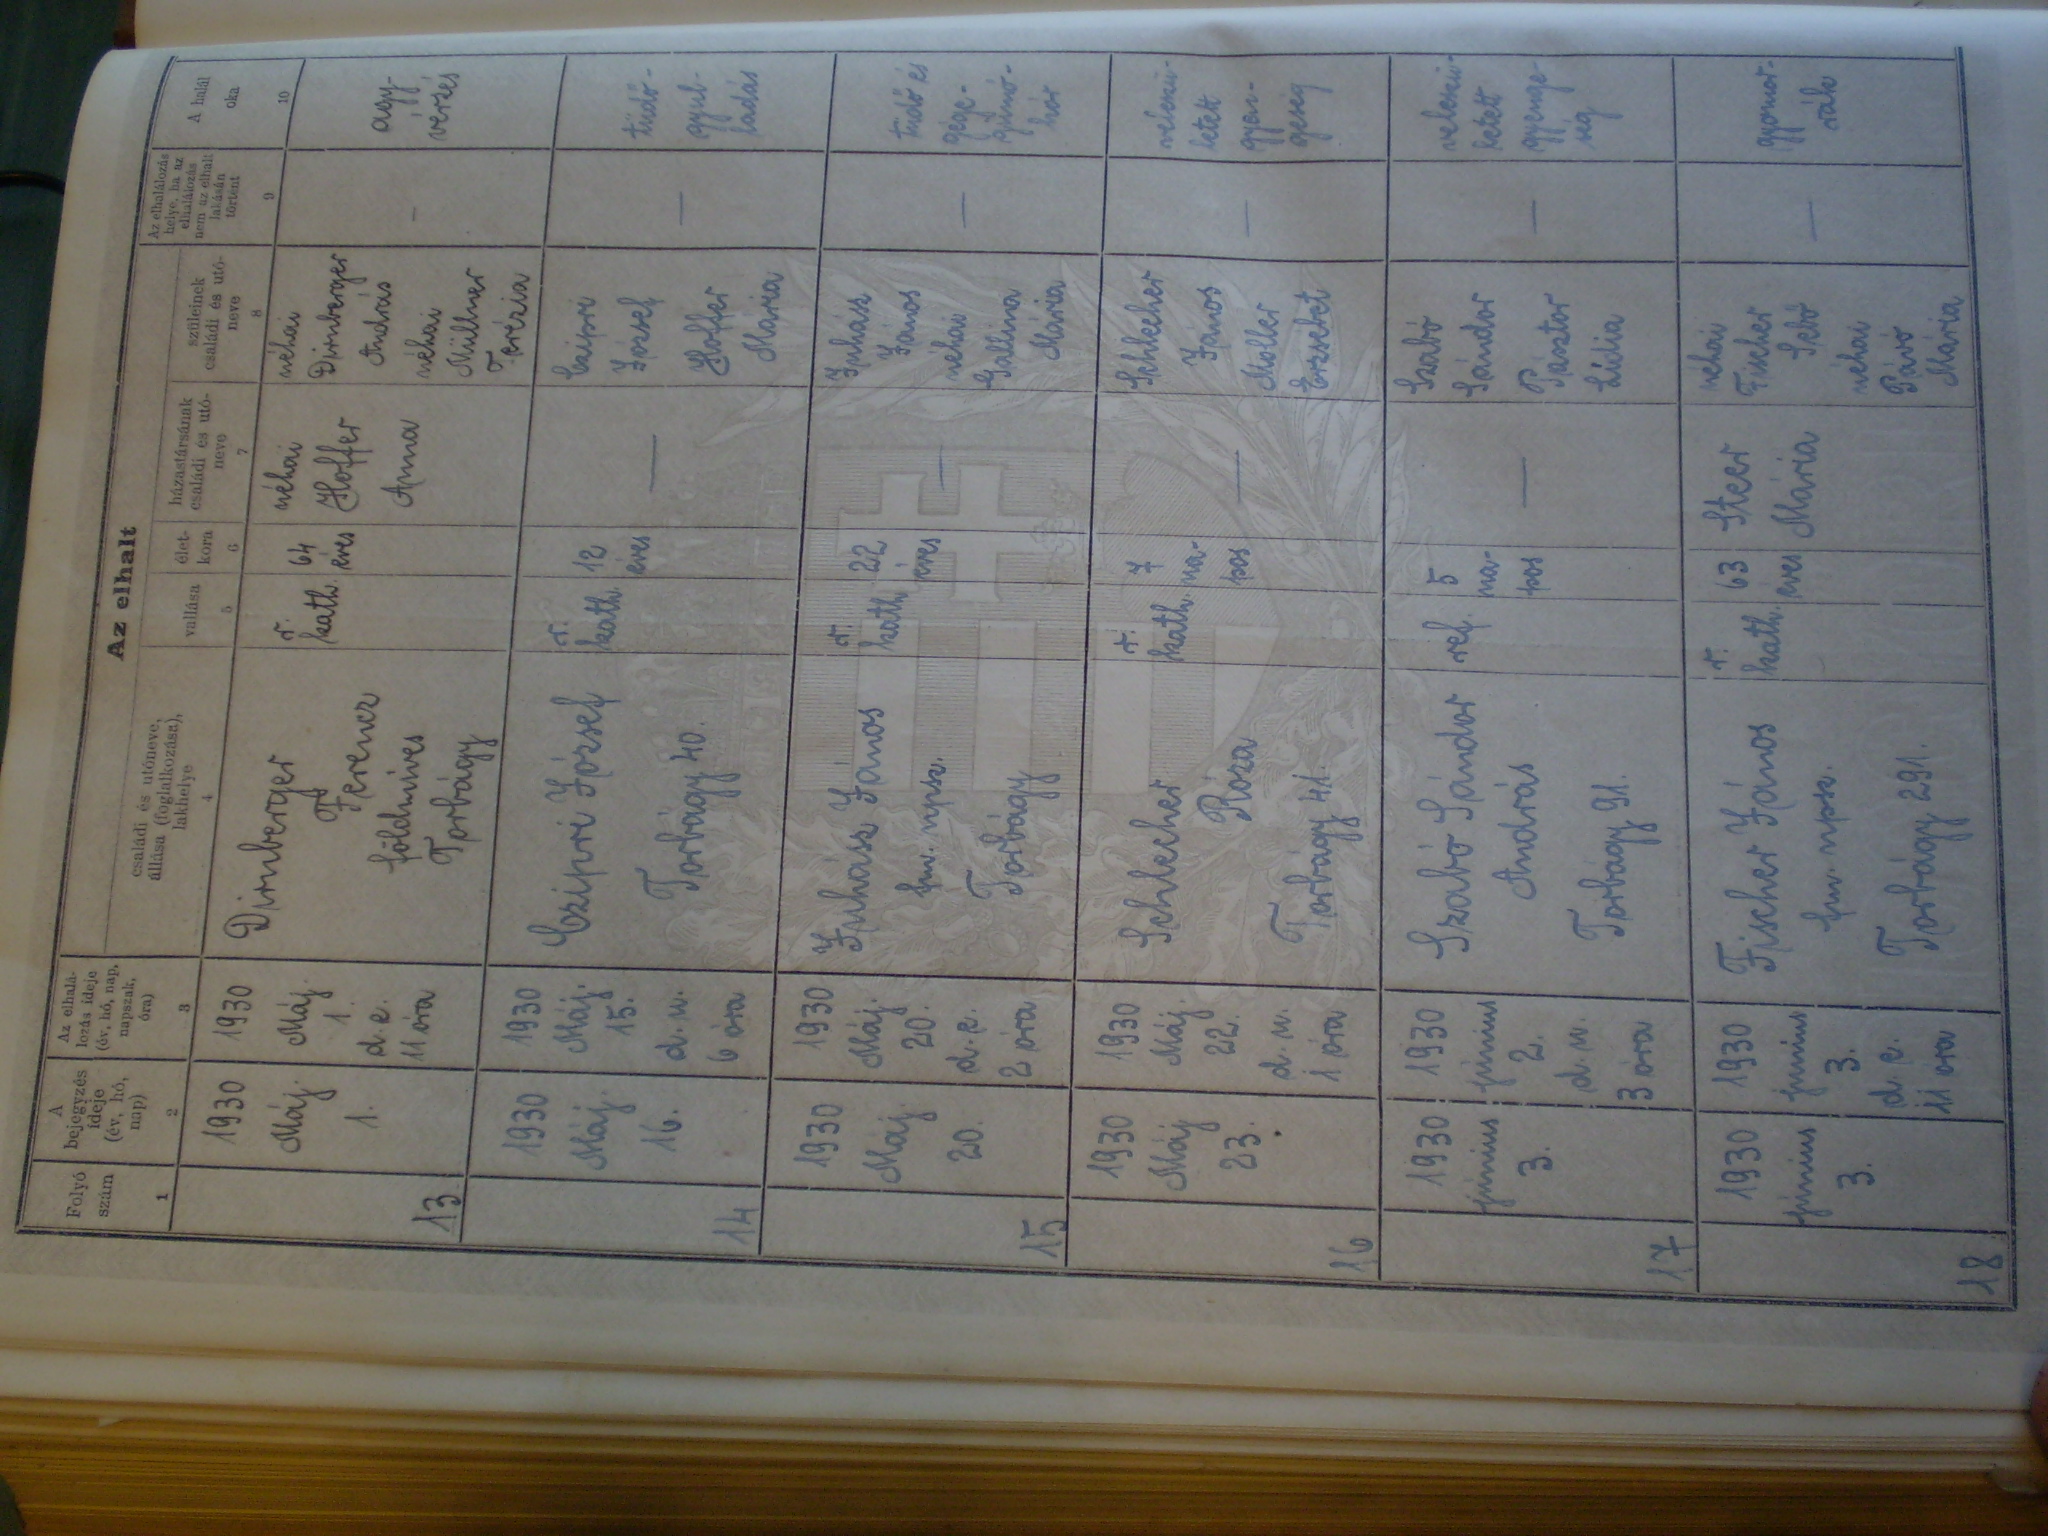 Az elhalt
Folyó
szám
A
bejegyzés
ideje
(év, hó,
nap)
Az elhalá-
lozás ideje
(év, hó, nap,
napszak,
óra)
családi és utóneve,
állása (foglalkozása),
lakhelye
vallása
élet-
kora
házastársának
családi és utó-
neve
szüleinek
családi és utó-
neve
Az elhalálozás
helye, ha az
elhalálozás
nem az elhalt
lakásán
történt
A halál
oka
1
2
3
4
5
6
7
8
9
10
13
1930
Máj.
1.
1930
Máj.
1.
d. e.
11 óra
Dirnberger
Ferencz
földmíves
Torbágy
r.
kath.
64
éves
néhai
Hoffer
Anna
néhai
Dirnberger
András
néhai
Müllner
Terézia
–
agy-
vérzés
14
1930
Máj.
16.
1930
Máj.
15.
d. u.
6 óra
Czipri József
Torbágy 40.
r.
kath.
12
éves
—
Czipri
József
Hoffer
Mária
—
tüdő-
gyul-
ladás
15
1930
Máj.
20.
1930
Máj.
20.
d. e.
2 óra
Juhász János
fm. npsz.
Torbágy
r.
kath.
22
éves
—
Juhász
János
néhai
Gallina
Mária
—
tüdő és
gége-
gümő-
kór
16
1930
Máj
23.
1930
Máj.
22.
d. u.
1 óra
Schlecher
Róza
Torbágy 41.
r.
kath.
7
na-
pos
—
Schlecher
János
Moller
Erzsébet
—
veleszü-
letett
gyen-
geség
17
1930
június
3.
1930
június
2.
d. u.
3 óra
Szabó Sándor
András
Torbágy 91.
ref.
5
na-
pos
—
Szabó
Sándor
Pásztor
Lídia
—
veleszü-
letett
gyenge-
ség
18
1930
június
3.
1930
június
3.
d. e.
11 óra
Fischer János
fm. npsz.
Torbágy 291.
r.
kath.
63
éves
Steer
Mária
néhai
Fischer
Sebő
néhai
Páró
Mária
—
gyomor-
rák